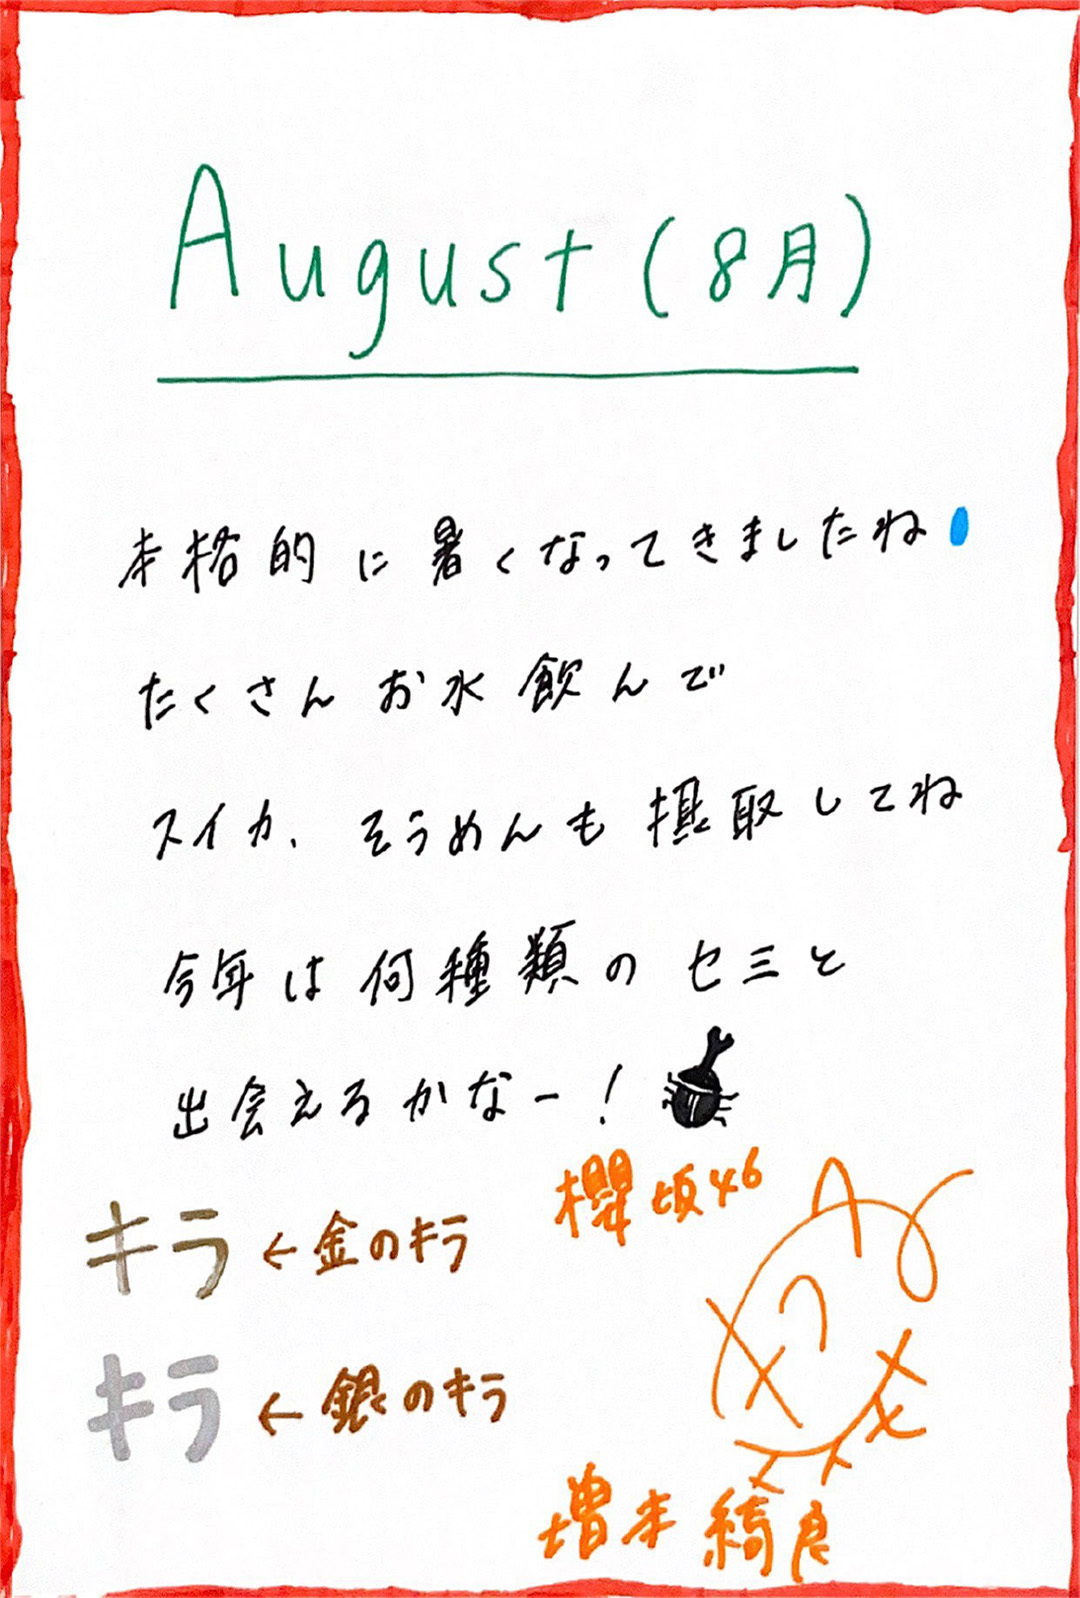 August (8月)
本格的に暑くなってきましたね
たくさんお水飲んで
スイカ、そうめんも摂取してね
今年は何種類のセミと
出会えるかなー!
櫻坂46
キラ←金のキラ
キラ←銀のキラ
増本綺良